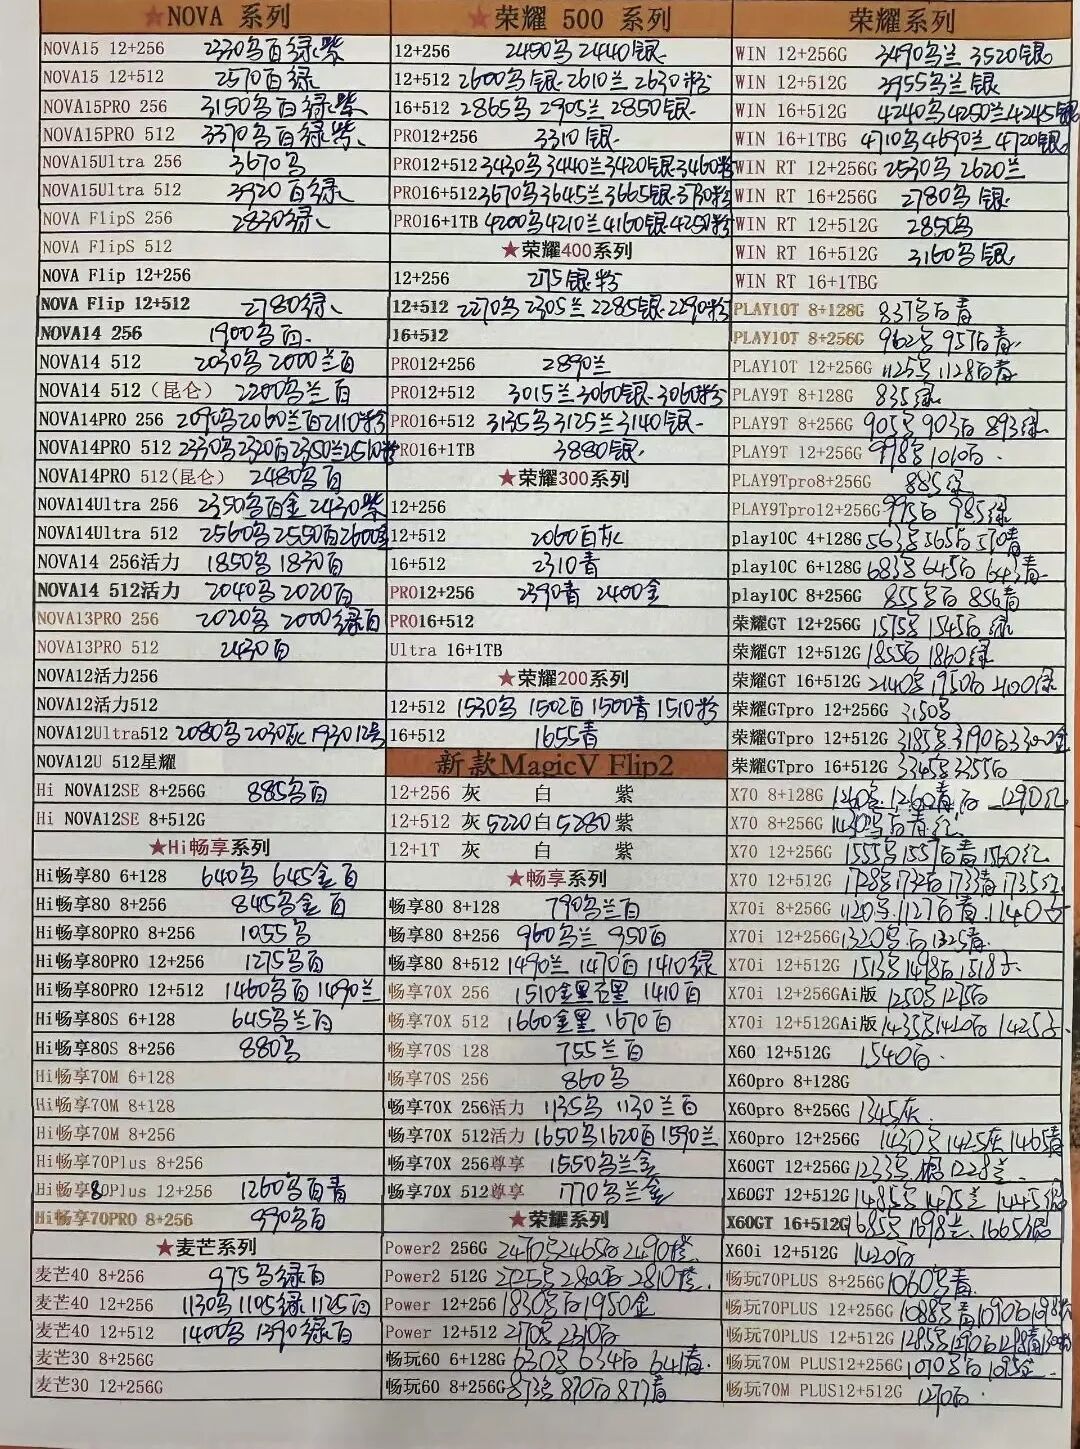 ★NOVA 系列
NOVA15 12+256 2330乌白绿紫
NOVA15 12+512 2570白绿
NOVA15PRO 256 3150乌白绿紫
NOVA15PRO 512 3370乌白绿紫
NOVA15Ultra 256 3670乌
NOVA15Ultra 512 3920白绿
NOVA FlipS 256 2830绿
NOVA FlipS 512
NOVA Flip 12+256
NOVA Flip 12+512 2780绿
NOVA14 256 1900乌白
NOVA14 512 2030乌 2000兰白
NOVA14 512（昆仑） 2200乌兰白
NOVA14PRO 256 2090乌2060兰白2110粉
NOVA14PRO 512 2330乌2320白2350兰2510粉
NOVA14PRO 512(昆仑) 2480乌白
NOVA14Ultra 256 2350乌白金 2430紫
NOVA14Ultra 512 2560乌2550白2600金
NOVA14 256活力 1850乌 1830白
NOVA14 512活力 2040乌 2020白
NOVA13PRO 256 2020乌 2000绿白
NOVA13PRO 512 2430白
NOVA12活力256
NOVA12活力512
NOVA12Ultra512 2080乌 2030灰 1930 12号
NOVA12U 512星耀
Hi NOVA12SE 8+256G 885乌白
Hi NOVA12SE 8+512G
★Hi畅享系列
Hi畅享80 6+128 640乌 645金白
Hi畅享80 8+256 845乌金白
Hi畅享80PRO 8+256 1055乌
Hi畅享80PRO 12+256 1275乌白
Hi畅享80PRO 12+512 1460乌白1490兰
Hi畅享80S 6+128 645乌兰白
Hi畅享80S 8+256 880乌
Hi畅享70M 6+128
Hi畅享70M 8+128
Hi畅享70M 8+256
Hi畅享70Plus 8+256
Hi畅享80Plus 12+256 1260乌白青
Hi畅享70PRO 8+256 990乌白
★麦芒系列
麦芒40 8+256 975乌绿白
麦芒40 12+256 1130乌1105绿1125白
麦芒40 12+512 1400乌1390绿白
麦芒30 8+256G
麦芒30 12+256G
★荣耀 500 系列
12+256 2450乌2440银
12+512 2600乌银2610兰2630粉
16+512 2865乌2905兰2850银
PRO12+256 3310银
PRO12+512 3430乌3440兰3420银3460粉
PRO16+512 3670乌3645兰3665银3730粉
PRO16+1TB 4200乌4210兰4160银4250粉
★荣耀400系列
12+256 275银粉
12+512 2270乌2305兰2285银2290粉
16+512
PRO12+256 2890兰
PRO12+512 3015兰3060银3060粉
PRO16+512 3135乌3125兰3140银
PRO16+1TB 3880银
★荣耀300系列
12+256
12+512 2060白灰
16+512 2310青
PRO12+256 2390青 2400金
PRO16+512
Ultra 16+1TB
★荣耀200系列
12+512 1530乌 1502白1500青1510粉
16+512 1655青
新款MagicV Flip2
12+256 灰 白 紫
12+512 灰5220白5280紫
12+1T 灰 白 紫
★畅享系列
畅享80 8+128 790乌兰白
畅享80 8+256 960乌兰 950白
畅享80 8+512 1490兰 1470白1410绿
畅享70X 256 1510金黑 1410白
畅享70X 512 1660金黑 1670白
畅享70S 128 755兰白
畅享70S 256 860乌
畅享70X 256活力 1135乌 1130兰白
畅享70X 512活力 1650乌1620白1590兰
畅享70X 256尊享 1550乌兰金
畅享70X 512尊享 1770乌兰金
★荣耀系列
Power2 256G 2470乌2465白2490橙
Power2 512G 2800白2810橙
Power 12+256 1830乌白1950金
Power 12+512 2310白
畅玩60 6+128G 630乌 634白 641青
畅玩60 8+256G 873乌 870白877青
荣耀系列
WIN 12+256G 3490乌兰 3520银
WIN 12+512G 3955乌兰银
WIN 16+512G 4240乌4250兰4245银
WIN 16+1TBG 4710乌4690兰4720银
WIN RT 12+256G 2530乌 2620兰
WIN RT 16+256G 2780乌银
WIN RT 12+512G 2850乌
WIN RT 16+512G 3160乌银
WIN RT 16+1TBG
PLAY10T 8+128G 837乌白青
PLAY10T 8+256G 962乌 957白青
PLAY10T 12+256G 1125乌1128白青
PLAY9T 8+128G 835绿
PLAY9T 8+256G 905乌903白893绿
PLAY9T 12+256G 998乌1010白
PLAY9Tpro8+256G 885绿
PLAY9Tpro12+256G 995白 985绿
play10C 4+128G 563乌565白570青
play10C 6+128G 683乌645白643青
play10C 8+256G 855乌白 856青
荣耀GT 12+256G 1575乌1545白绿
荣耀GT 12+512G 1855白1860绿
荣耀GT 16+512G 2140乌1950白2100绿
荣耀GTpro 12+256G 3150乌
荣耀GTpro 12+512G 3185乌3190白3300金
荣耀GTpro 16+512G 3345乌3355白
X70 8+128G 1260乌1260青白 1290红
X70 8+256G 1430乌白青红
X70 12+256G 1555乌1557白青1560红
X70 12+512G 1728乌1732白1733青1735红
X70i 8+256G 1120乌1127白青1140
X70i 12+256G1320乌白1325青
X70i 12+512G 1513乌1498白1518
X70i 12+256GAi版 1250乌1275白
X70i 12+512GAi版 1435乌1420白1425
X60 12+512G 1540白
X60pro 8+128G
X60pro 8+256G 1345灰
X60pro 12+256G 1430乌1425灰1465青
X60GT 12+256G 1233乌 1228兰
X60GT 12+512G 1485乌1475兰1445银
X60GT 16+512G 1685乌1698兰1665银
X60i 12+512G 1420白
畅玩70PLUS 8+256G 1060乌青
畅玩70PLUS 12+256G 1088乌青1090白
畅玩70PLUS 12+512G
畅玩70M PLUS12+256G 1070乌白1095金
畅玩70M PLUS12+512G 1270白